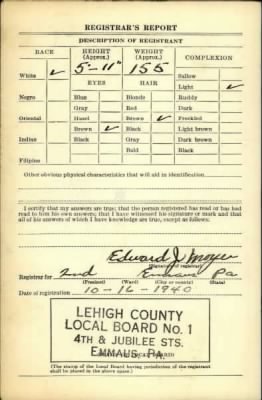 REGISTRAR'S REPORT
DESCRIPTION OF REGISTRANT
RACE HEIGHT (Approx.) WEIGHT (Approx.) COMPLEXION
5'-11" 155 Sallow
White ✓ EYES HAIR Light ✓
Negro Blue Blonde Ruddy
Gray Red Dark
Oriental Hazel Brown ✓ Freckled
Brown ✓ Black Light brown
Indian Black Gray Dark brown
Bald Black
Filipino
Other obvious physical characteristics that will aid in identification
I certify that my answers are true; that the person registered has read or has had
read to him his own answers; that I have witnessed his signature or mark and that
all of his answers of which I have knowledge are true, except as follows:
Edward J. Moyer
(Signature of registrar)
Registrar for 2nd Emmaus Pa
(Precinct) (Ward) (City or county) (State)
Date of registration 10-16-1940
LEHIGH COUNTY
LOCAL BOARD No. 1
4TH & JUBILEE STS.
EMMAUS, PA.
(The stamp of the Local Board having jurisdiction of the registrant
shall be placed in the above space.)